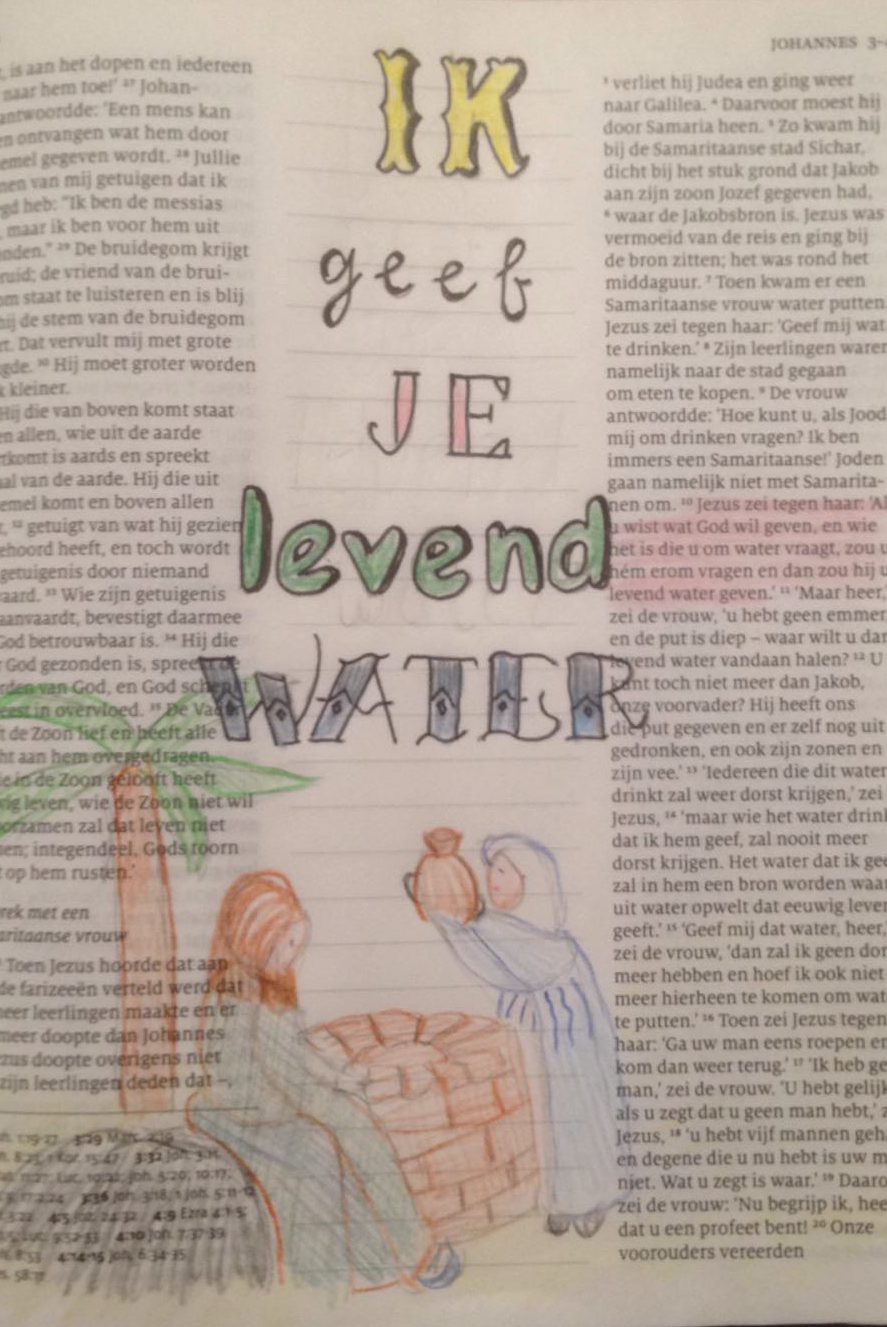 JOHANNES 3-
, is aan het dopen en iedereen
naar hem toe!' 27 Johan-
antwoordde: 'Een mens kan
en ontvangen wat hem door
emel gegeven wordt. 28 Jullie
nen van mij getuigen dat ik
gd heb: "Ik ben de messias
, maar ik ben voor hem uit
onden." 29 De bruidegom krijgt
ruid; de vriend van de brui-
om staat te luisteren en is blij
hij de stem van de bruidegom
rt. Dat vervult mij met grote
gde. 30 Hij moet groter worden
k kleiner.
Hij die van boven komt staat
en allen, wie uit de aarde
rtkomt is aards en spreekt
al van de aarde. Hij die uit
emel komt en boven allen
t, 32 getuigt van wat hij gezien
ehoord heeft, en toch wordt
getuigenis door niemand
vaard. 33 Wie zijn getuigenis
aanvaardt, bevestigt daarmee
God betrouwbaar is. 34 Hij die
God gezonden is, spreekt de
rden van God, en God schenkt
eest in overvloed. 35 De Va
t de Zoon lief en heeft alle
ht aan hem overgedragen.
e in de Zoon gelooft heeft
wig leven, wie de Zoon niet wil
oorzamen zal dat leven niet
nen; integendeel, Gods toorn
t op hem rusten.'
rek met een
aritaanse vrouw
Toen Jezus hoorde dat aan
de farizeeën verteld werd dat
meer leerlingen maakte en er
meer doopte dan Johannes
zus doopte overigens niet
zijn leerlingen deden dat –,
3:29
3:32
3:36 Joh. 3:18; 1 Joh. 5:11-12
4:5 4:9 Ezra 4:1-5
4:10 Joh. 7:37-39
4:14-15 Joh. 6:34-35
IK
geef
JE
levend
WATER
3 verliet hij Judea en ging weer
naar Galilea. 4 Daarvoor moest hij
door Samaria heen. 5 Zo kwam hij
bij de Samaritaanse stad Sichar,
dicht bij het stuk grond dat Jakob
aan zijn zoon Jozef gegeven had,
6 waar de Jakobsbron is. Jezus was
vermoeid van de reis en ging bij
de bron zitten; het was rond het
middaguur. 7 Toen kwam er een
Samaritaanse vrouw water putten.
Jezus zei tegen haar: 'Geef mij wat
te drinken.' 8 Zijn leerlingen waren
namelijk naar de stad gegaan
om eten te kopen. 9 De vrouw
antwoordde: 'Hoe kunt u, als Jood
mij om drinken vragen? Ik ben
immers een Samaritaanse!' Joden
gaan namelijk niet met Samarita-
nen om. 10 Jezus zei tegen haar: 'Al
u wist wat God wil geven, en wie
het is die u om water vraagt, zou u
hém erom vragen en dan zou hij u
levend water geven.' 11 'Maar heer,'
zei de vrouw, 'u hebt geen emmer
en de put is diep – waar wilt u dan
levend water vandaan halen? 12 U
kunt toch niet meer dan Jakob,
onze voorvader? Hij heeft ons
die put gegeven en er zelf nog uit
gedronken, en ook zijn zonen en
zijn vee.' 13 'Iedereen die dit water
drinkt zal weer dorst krijgen,' zei
Jezus, 14 'maar wie het water drink
dat ik hem geef, zal nooit meer
dorst krijgen. Het water dat ik gee
zal in hem een bron worden waar
uit water opwelt dat eeuwig leven
geeft.' 15 'Geef mij dat water, heer,'
zei de vrouw, 'dan zal ik geen dor
meer hebben en hoef ik ook niet
meer hierheen te komen om wat
te putten.' 16 Toen zei Jezus tegen
haar: 'Ga uw man eens roepen en
kom dan weer terug.' 17 'Ik heb ge
man,' zei de vrouw. 'U hebt gelijk
als u zegt dat u geen man hebt,' z
Jezus, 18 'u hebt vijf mannen geh
en degene die u nu hebt is uw m
niet. Wat u zegt is waar.' 19 Daaro
zei de vrouw: 'Nu begrijp ik, hee
dat u een profeet bent! 20 Onze
voorouders vereerden